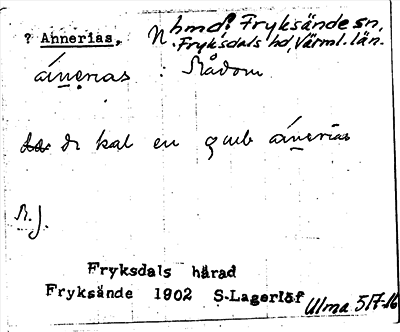 ? Annerias, N hmd? Fryksände sn,
Fryksdals hd, Värml. län.
ánerias : Rådom
de kal en gub ánerias
R.J.
Fryksdals härad
Fryksände 1902 S-Lagerlöf
Ulma 317-16